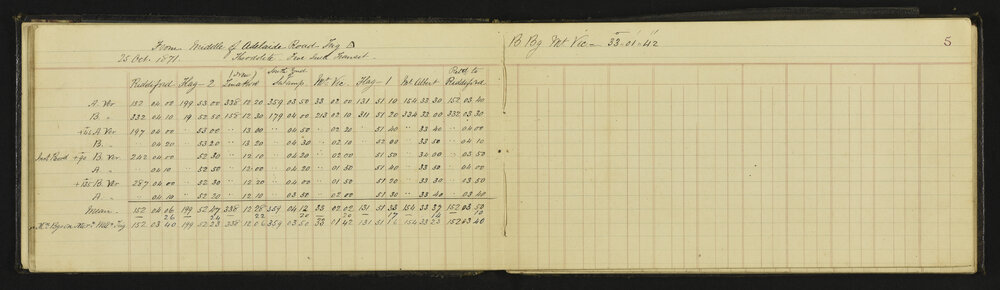 From Middle of Adelaide Road Trig △
25 Oct. 1871. Theodolite - Five inch Transit.
Riddiford Flag-2 (Iron) South End Swamp Mt. Vic. Flag-1 Mt. Albert Back to Riddiford
A. Ver 152 04.00 199 53.00 338 12 20 359 03.50 33 02.00 131 51 10 154 33 30 152 03.40
B. " 332 04.10 19 52.50 158 12.30 179 04.00 213 02.10 311 51 20 334 33.00 332 03.30
+45 A. Ver 197 04.00 " 53.00 " 13.00 " 04.50 " 02.20 " 51.40 " 33.40 " 04.00
B. " 04.20 " 53.20 " 13.20 " 04.30 " 02.10 " 52.00 " 33.50 " 04.10
Inst. Revd +90 B. Ver 242 04.00 52.30 " 12.10 " 04.20 " 02.00 51.50 " 34.00 " 03.50
A. " 04.10 " 52.50 " 13.00 " 04.20 " 01.50 " 51.40 " 33.50 " 04.00
+135 B. Ver 287 04.00 " 52.30 " 12.20 " 04.00 " 01.50 51.20 " 33.30 " 03.50
A. " 04.10 " 52.20 " 12.10 03.50 " 02.00 " 51.30 " 33.40 " 03.40
Mean. 152 04 06 199 52.47 338 12 28 359 04.12 33 02 02 131 51 33 154 33 37 152 03.50
26 24 22 20 20 17 14 10
152 03.40 199 52 23 338 12 06 359 03.50 33 01 42 131 51 16 154 33 23 152 03 40
B Bg Mt. Vic - 33°-01'-42"
5